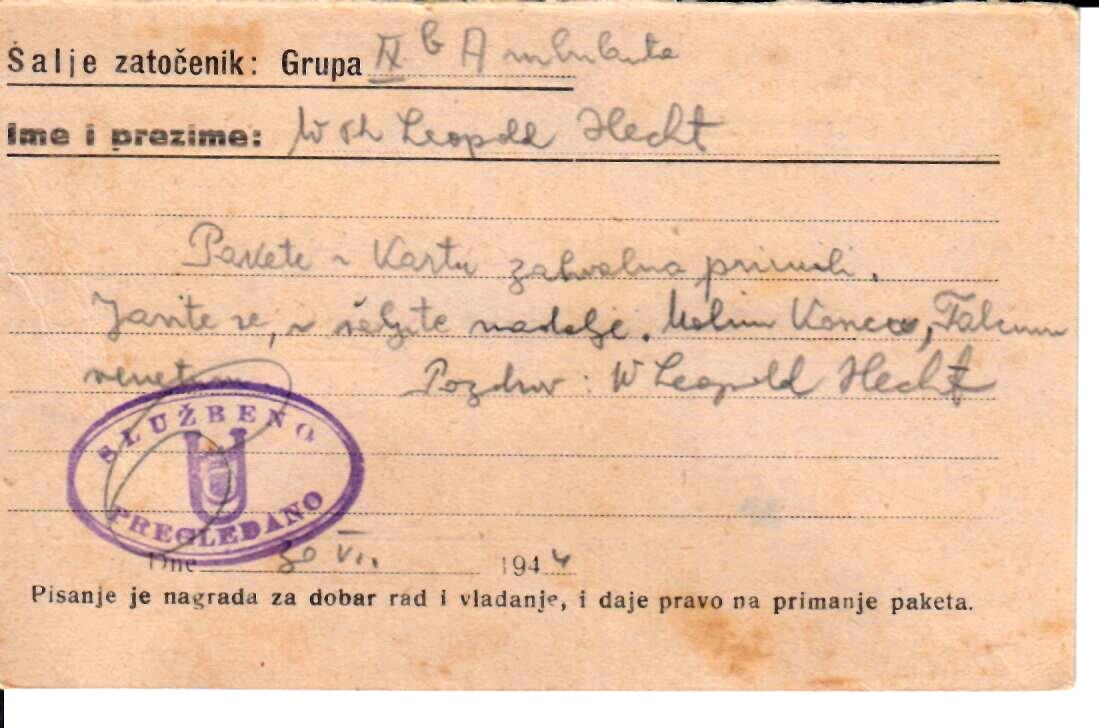 Šalje zatočenik: Grupa IX b Ambulanta
Ime i prezime: Leopold Hecht
Pakete i Kartu zahvalno primili.
Javite se, i šaljite nadalje. Molim Konce, Talcum
venetum Pozdrav: Leopold Hecht
SLUŽBENO
U
PREGLEDANO
Dne 30 VI. 1944
Pisanje je nagrada za dobar rad i vladanje, i daje pravo na primanje paketa.